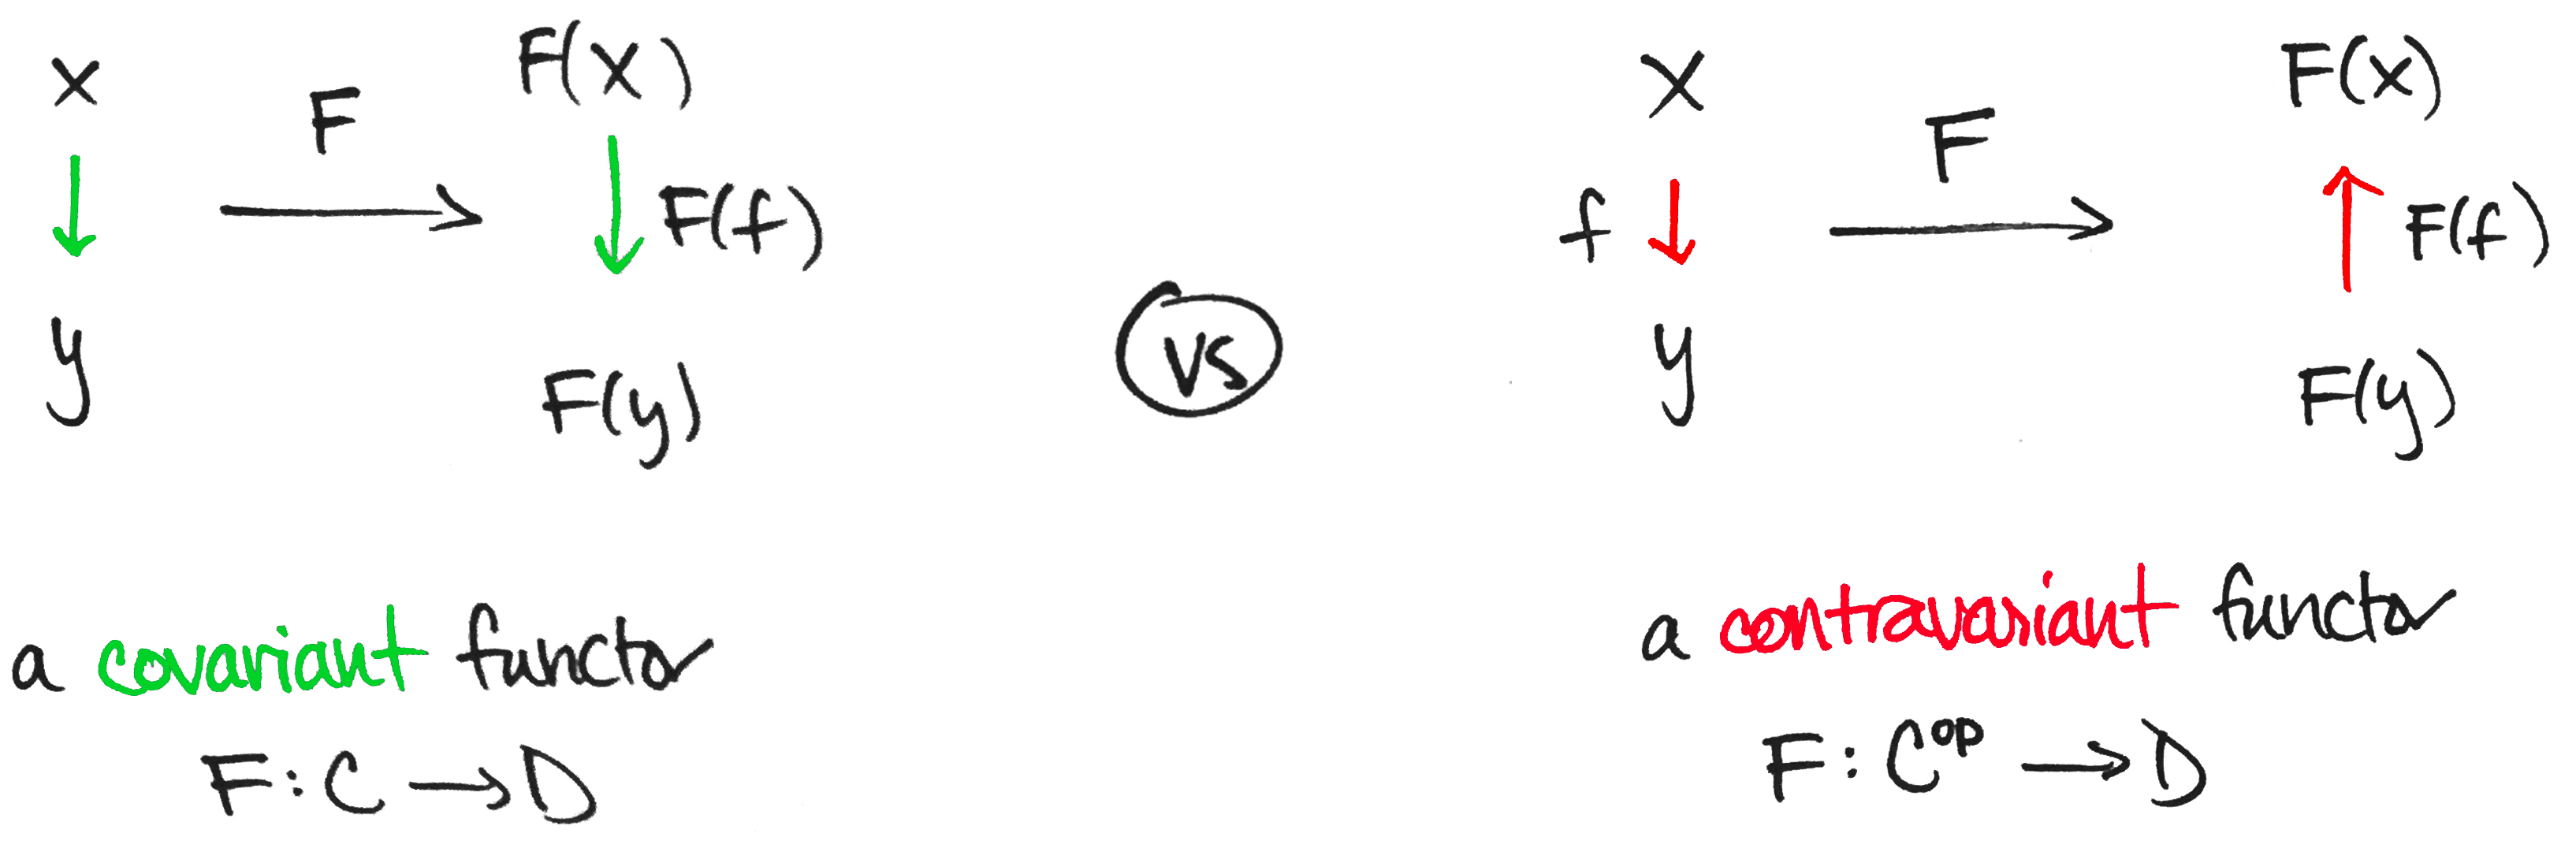 x F F(x)
F(f)
y F(y)
a covariant functor
F: C → D
vs
x F F(x)
f F(f)
y F(y)
a contravariant functor
F: C^op → D